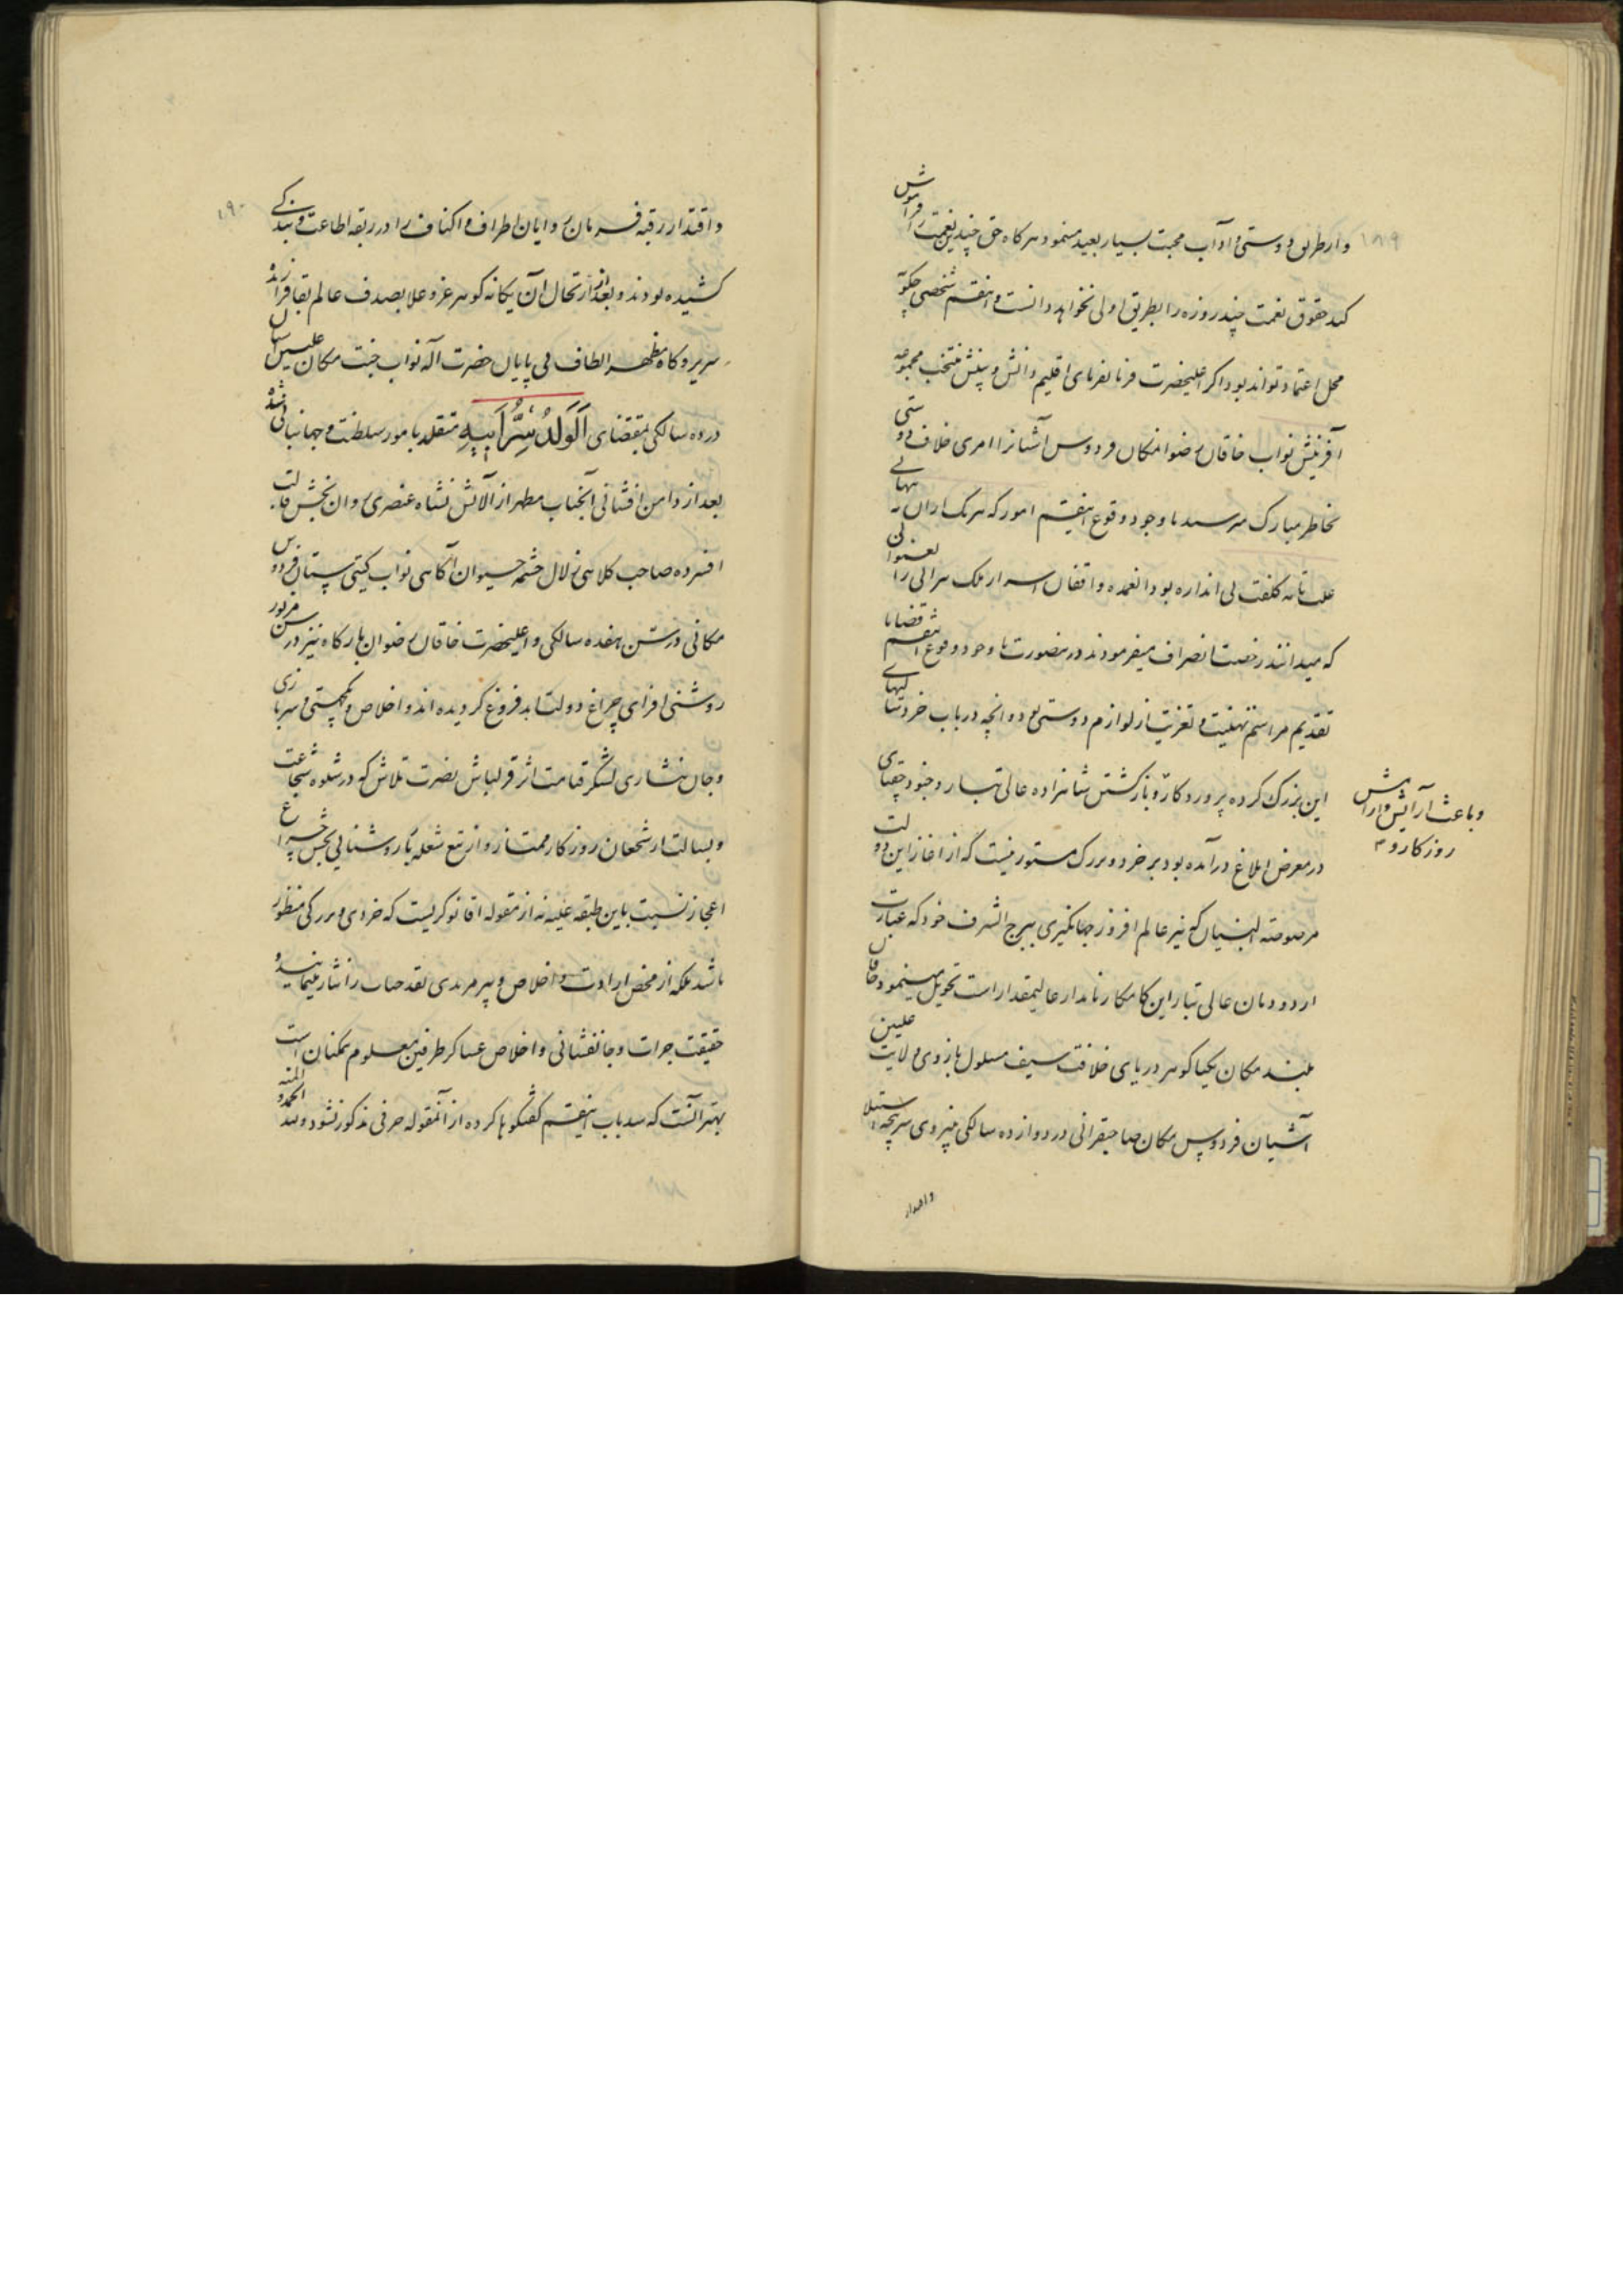 ۱۸۹
و از طریق دوستی و آداب محبت بسیار بعید مینمود هرکاه حق چندین نعمت را فراموش
کند حقوق نعمت چند روزه را بطریق اولی نخواهد دانست و اینقسم شخصی چکونه
محل اعتماد تواند بود اکر اعلیحضرت فرمانفرمای اقلیم دانش و بینش منتخب مجموعه
آفرینش نواب خاقان رضوانمکان فردوس آشیانرا امری خلاف دوستی
بخاطر مبارک میرسید با وجود وقوع اینقسم امور که هر یک ازان
علت تامه کلفت بی اندازه بود انعمده واقفان اسرار ملک سرائی را
که میدانند رخصت انصراف میفرمودند درینصورت با وجود وقوع اینقسم قضایا
تقدیم مراسم تهنیت و تعزیت از لوازم دوستی بود و انچه در باب خردسالیهای
این بزرک کرده پروردکار و بازکشتن شاهزاده عالی تبار و جنود جغتای
در معرض ابلاغ درآمده بود بر خرد و بزرک مستور نیست که از اغاز این دولت
مرصوصة البنیان که نیر عالم افروز جهانکیری ببرج الشرف خود که عبارت
از دودمان عالی تبار این کامکار نامدار عالیمقدار است تحویل مینمود خاقان
بلند مکان یکتا کوهر دریای خلافت سیف مسلول بازوی ولایت علیین
آشیان فردوس مکان صاحبقرانی در دوازده سالکی بنیروی سرپنجه استیلا
و اقتدار
و باعث آرایش و ارامش
روزکار و
۱۹۰
و اقتدار رقبه فرمان روایان اطراف و اکناف را در ربقه اطاعت و بندکی
کشیده بودند و بعد از ارتحال آن یکانه کوهر عز و علا بصدف عالم بقا فرازنده
سریر و کاه مظهر الطاف بی پایان حضرت اله نواب جنت مکان علیین آشیان
در ده سالکی بمقتضای اَلْوَلَدُ سِرُّ اَبِیهِ متقلد بامور سلطنت و جهانبانی شده
بعد از دامن افشانی آنجناب مطهر از آلایش نشاه عنصری روان بخش قالب
افسرده صاحب کلاهی زلال چشمه حیوان آکاهی نواب کیتی ستان فردوس
مکانی در سن هفده سالکی و اعلیحضرت خاقان رضوان بارکاه نیز در سن مزبور
روشنی افزای چراغ دولت ابد فروغ کردیده اند و اخلاص و یکجهتی و سربازی
و جان نثاری لشکر قیامت اثر قزلباش نصرت تلاش که در شیوه شجاعت
و بسالت از شجعان روزکار ممتاز و از تیغ شعله بار روشنائی بخش چراغ
اعجازند نسبت باین طبقه علیه نه از مقوله اقا نوکریست که خردی و بزرکی منظور
باشد بلکه از محض ارادت و اخلاص و پیر مریدی نقد حیات را نثار مینمایند و
حقیقت جرات و جانفشانی و اخلاص عساکر طرفین معلوم همکنان است
بهتر آنست که سد باب اینقسم کفتکوها کرده از آنمقوله حرفی مذکور نشود و لله الحمد و المنه